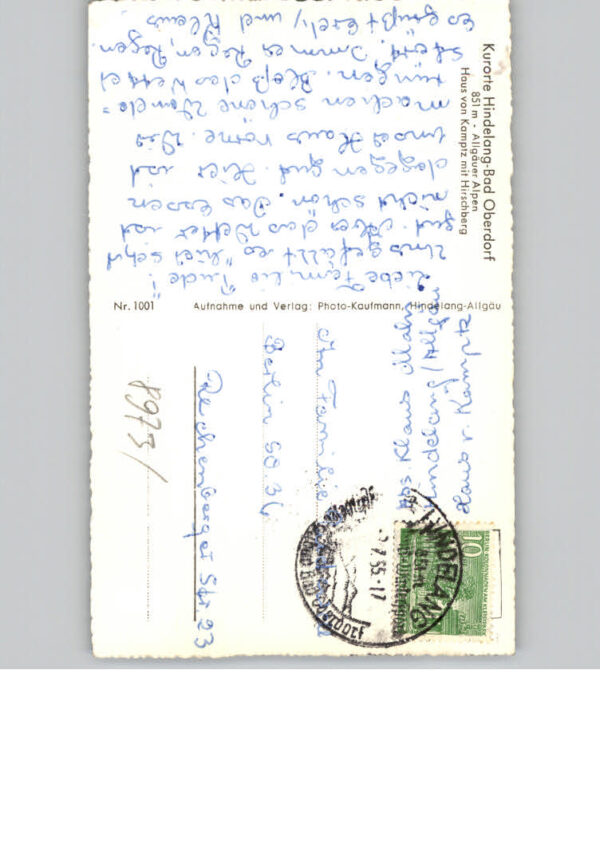 Kurorte Hindelang-Bad Oberdorf
851 m - Allgäuer Alpen
Haus von Kamptz mit Hirschberg
Liebe Familie
Uns gefällt es hier sehr
gut. Aber das Wetter ist
nicht schön. Das Essen
dagegen gut. Hier ist
unser Haus vorne. Wir
machen schöne Wande=
rungen. Bloß das Wetter
stört. Immer Regen, Regen.
Es grüßt Euch, und Klaus
Nr. 1001 Aufnahme und Verlag: Photo-Kaufmann, Hindelang-Allgäu
Abs. Klaus
Hindelang/Allgäu
Haus v. Kamptz
An Familie
Berlin SO. 36
Reichenberger Str. 23
8973/
HINDELANG
7.55-17
10